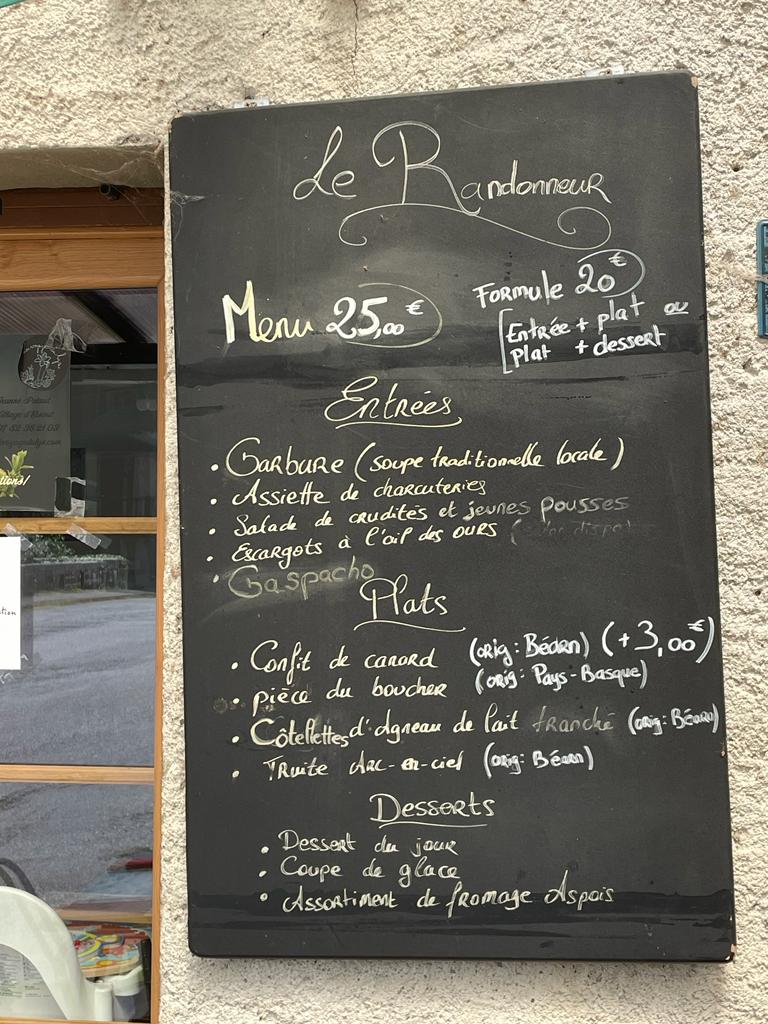 Le Randonneur
Menu 25,00 €
Formule 20 €
Entrée + plat ou
Plat + dessert
Entrées
• Garbure (soupe traditionnelle locale)
• Assiette de charcuteries
• Salade de crudités et jeunes pousses
• Escargots à l'ail des ours
• Gaspacho
Plats
• Confit de canard (orig: Béarn) (+3,00 €)
• pièce du boucher (orig: Pays-Basque)
• Côtelettes d'Agneau de lait tranché (orig: Béarn)
• Truite Arc-en-ciel (orig: Béarn)
Desserts
• Dessert du jour
• Coupe de glace
• Assortiment de fromage Aspois